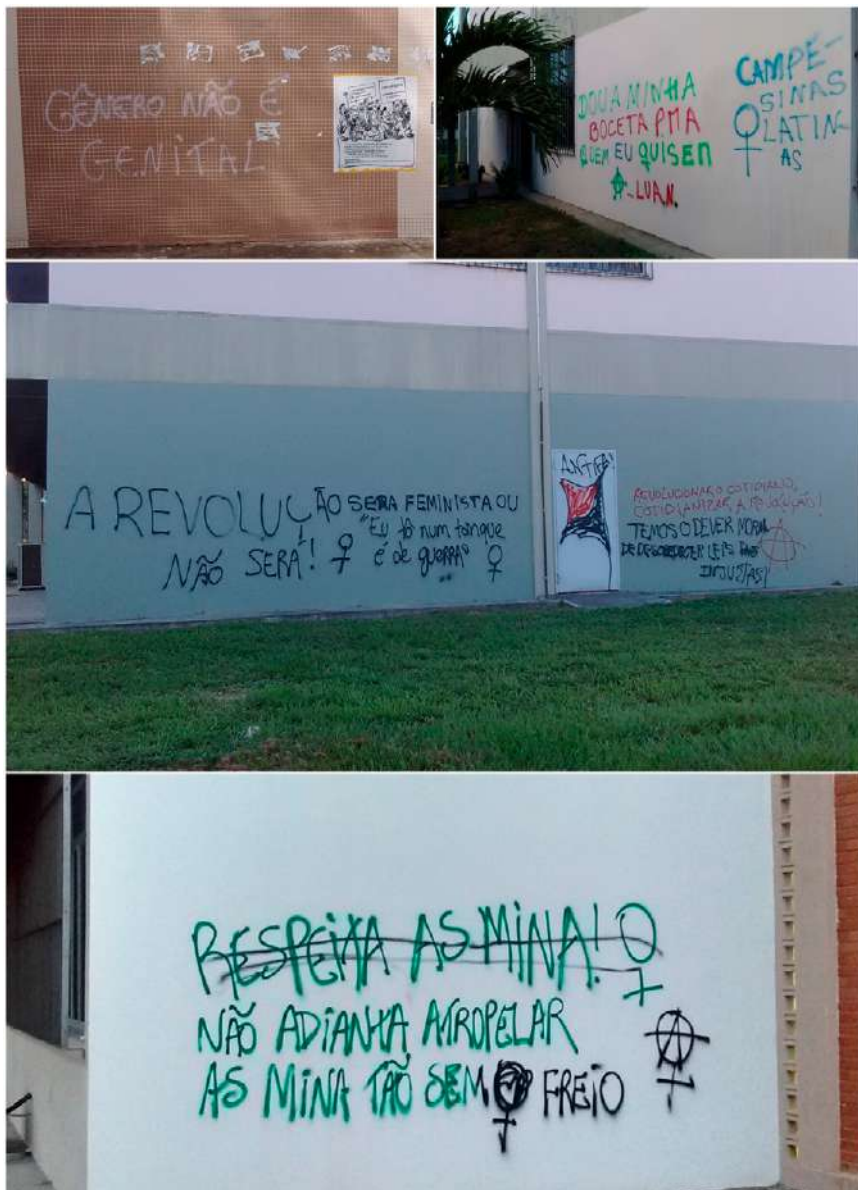 GÊNERO NÃO É
GENITAL
DOU A MINHA
BOCETA PRA
QUEM EU QUISER
LUAN.
CAMPE-
SINAS
LATIN-
AS
A REVOLUÇÃO SERA FEMINISTA OU
NÃO SERÁ!
"Eu tô num tanque
é de guerra"
ANTIFA
REVOLUCIONAR O COTIDIANO,
COTIDIANIZAR A REVOLUÇÃO!
TEMOS O DEVER MORAL
DE DESOBEDECER LEIS
INJUSTAS!
RESPEITA AS MINA!
NÃO ADIANTA ATROPELAR
AS MINA TÃO SEM FREIO